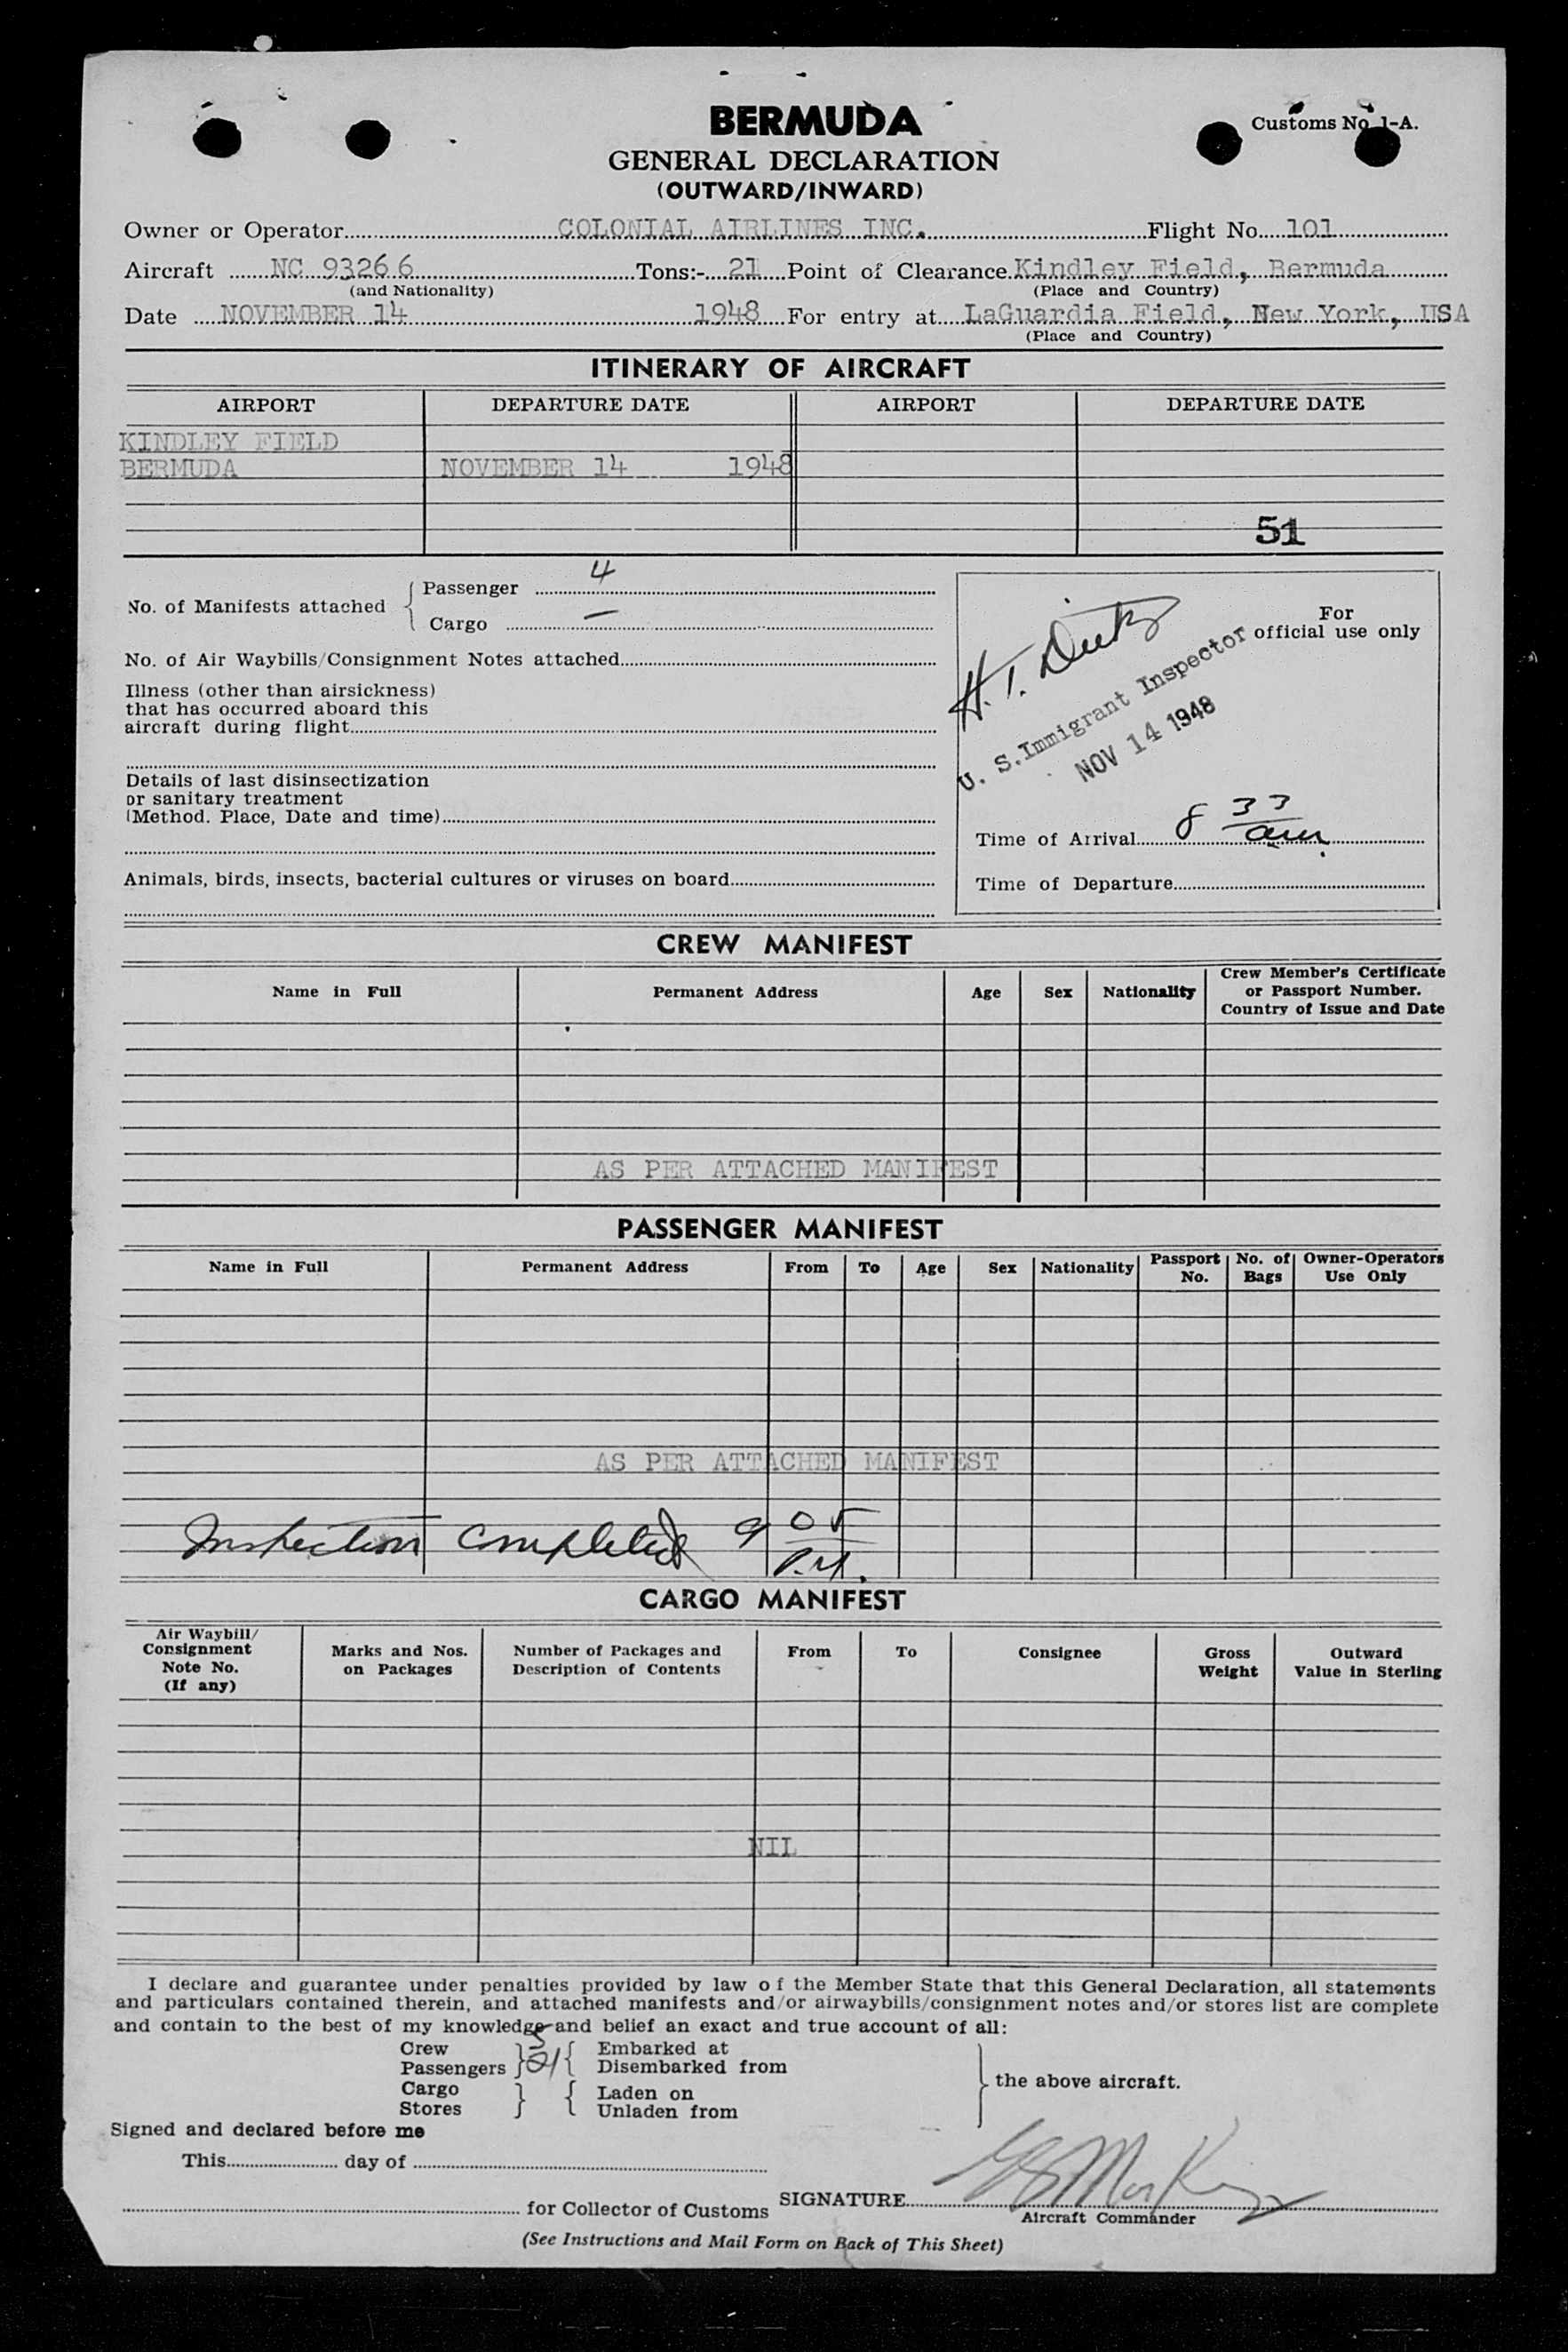 BERMUDA
Customs No. 1-A.
GENERAL DECLARATION
(OUTWARD/INWARD)
Owner or Operator COLONIAL AIRLINES INC. Flight No. 101
Aircraft NC 93266 Tons:- 21 Point of Clearance Kindley Field, Bermuda
(and Nationality) (Place and Country)
Date NOVEMBER 14 1948 For entry at LaGuardia Field, New York, USA
(Place and Country)
ITINERARY OF AIRCRAFT
AIRPORT DEPARTURE DATE AIRPORT DEPARTURE DATE
KINDLEY FIELD
BERMUDA NOVEMBER 14 1948
51
No. of Manifests attached
Passenger 4
Cargo —
No. of Air Waybills/Consignment Notes attached
Illness (other than airsickness)
that has occurred aboard this
aircraft during flight
Details of last disinsectization
or sanitary treatment
(Method. Place, Date and time)
Animals, birds, insects, bacterial cultures or viruses on board
For
official use only
H. T.
U. S. Immigrant Inspector
NOV 14 1948
Time of Arrival 8 33 am
Time of Departure
CREW MANIFEST
Name in Full Permanent Address Age Sex Nationality Crew Member's Certificate
or Passport Number.
Country of Issue and Date
AS PER ATTACHED MANIFEST
PASSENGER MANIFEST
Name in Full Permanent Address From To Age Sex Nationality Passport No. No. of Bags Owner-Operators Use Only
AS PER ATTACHED MANIFEST
Inspection completed 9 05 P.M.
CARGO MANIFEST
Air Waybill/
Consignment
Note No.
(If any)
Marks and Nos.
on Packages
Number of Packages and
Description of Contents
From To Consignee
Gross
Weight
Outward
Value in Sterling
NIL
I declare and guarantee under penalties provided by law of the Member State that this General Declaration, all statements
and particulars contained therein, and attached manifests and/or airwaybills/consignment notes and/or stores list are complete
and contain to the best of my knowledge and belief an exact and true account of all:
Crew 5 Embarked at
Passengers 21 Disembarked from
Cargo Laden on
Stores Unladen from
the above aircraft.
Signed and declared before me
This day of
for Collector of Customs SIGNATURE
Aircraft Commander
(See Instructions and Mail Form on Back of This Sheet)